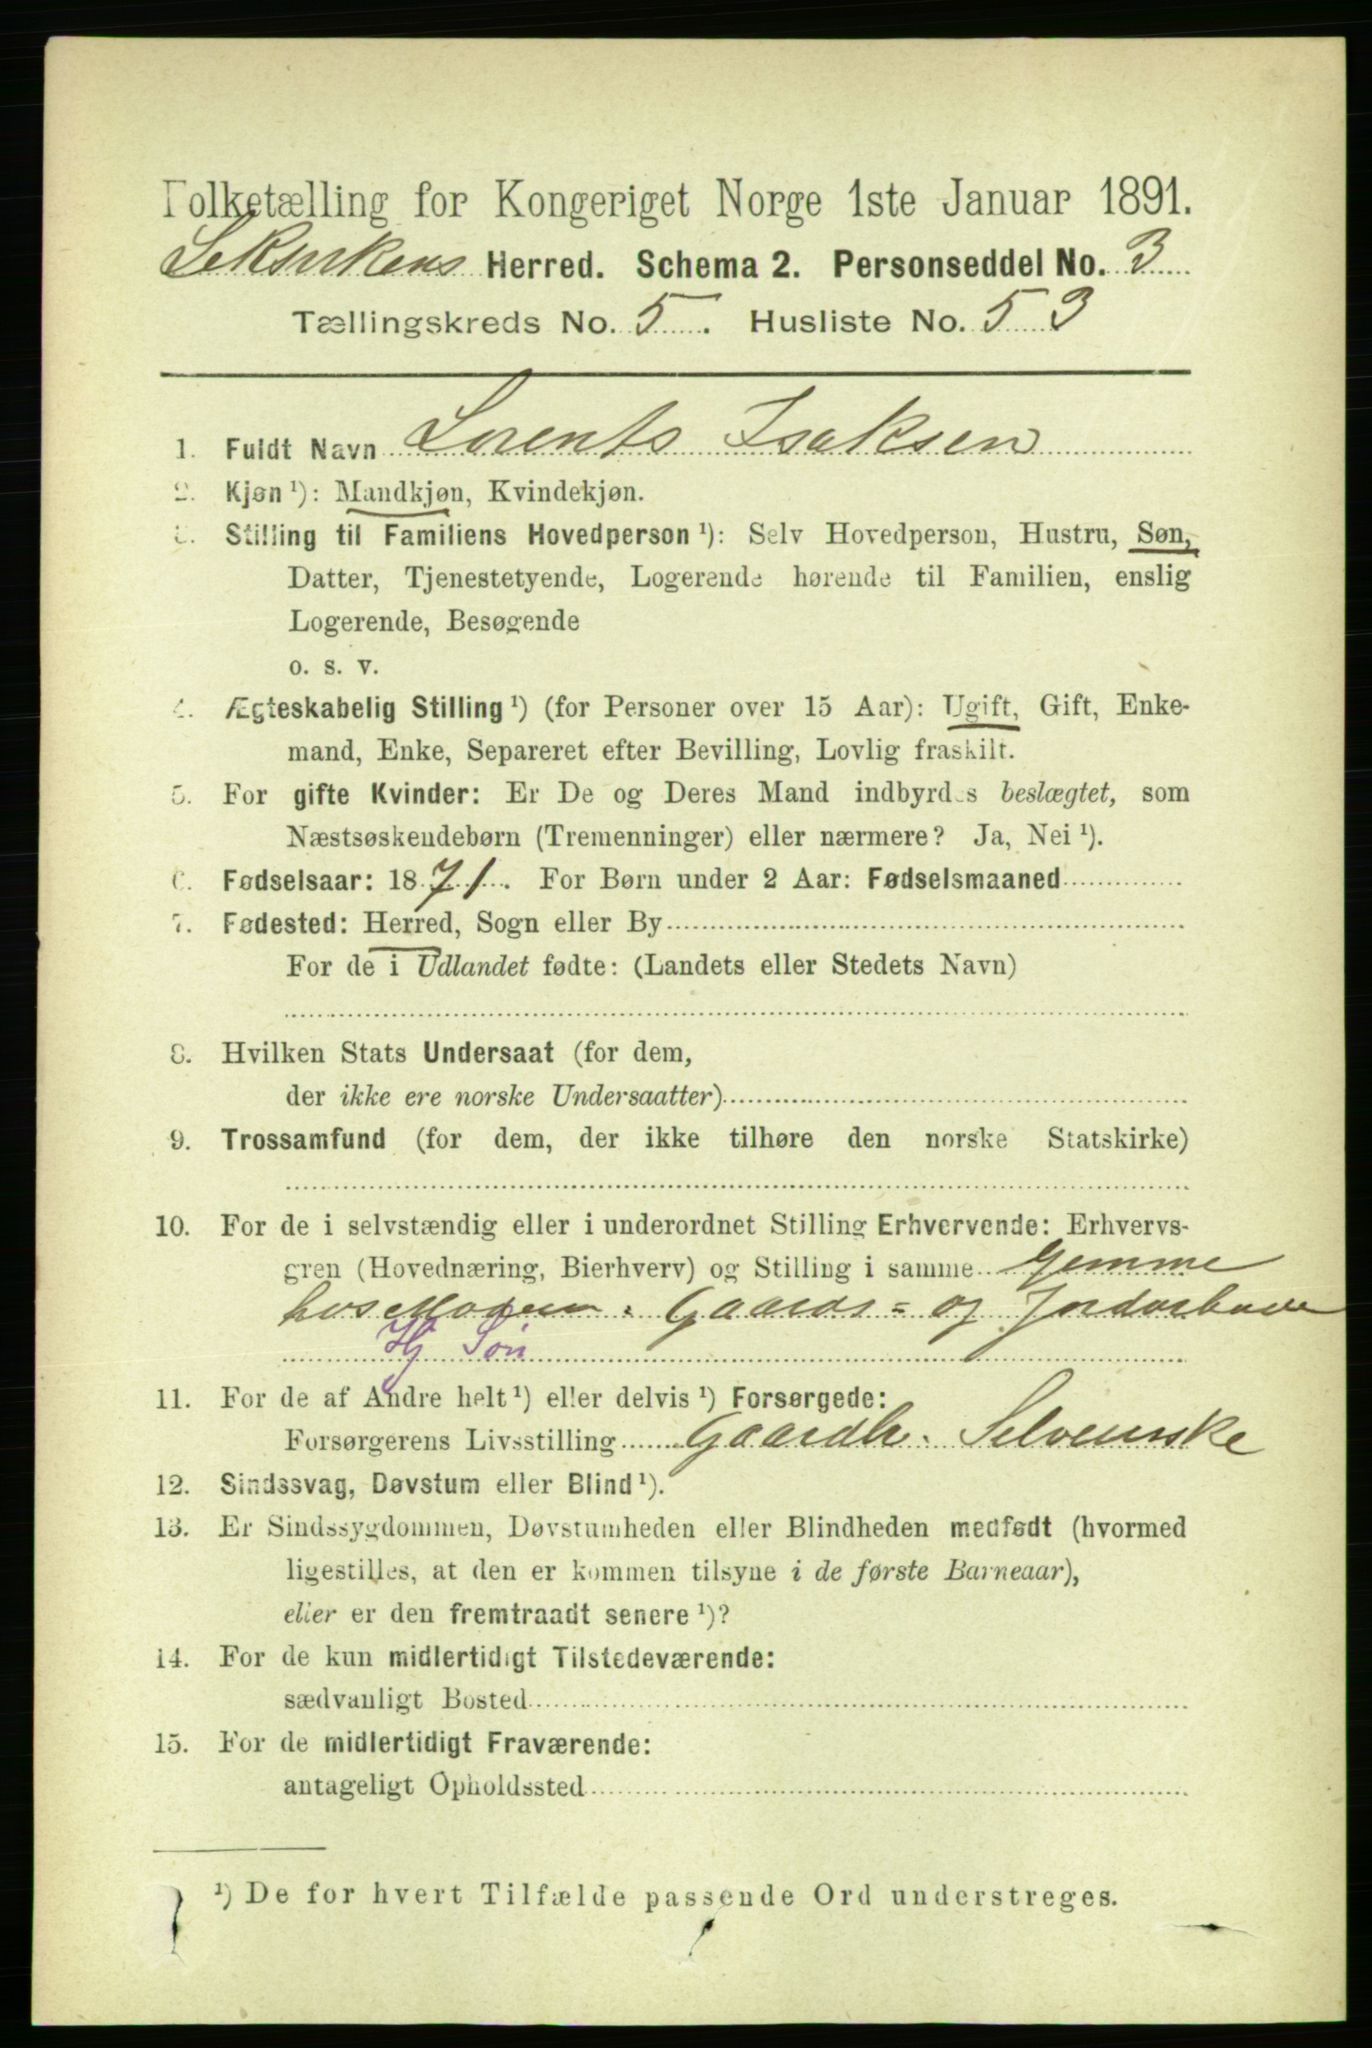 Folketælling for Kongeriget Norge 1ste Januar 1891.
Leksvikens Herred. Schema 2. Personseddel No. 3
Tællingskreds No. 5. Husliste No. 53
1. Fuldt Navn Lorents Isaksen
2. Kjøn ¹): Mandkjøn, Kvindekjøn.
3. Stilling til Familiens Hovedperson ¹): Selv Hovedperson, Hustru, Søn,
Datter, Tjenestetyende, Logerende hørende til Familien, enslig
Logerende, Besøgende
o. s. v.
4. Ægteskabelig Stilling ¹) (for Personer over 15 Aar): Ugift, Gift, Enke-
mand, Enke, Separeret efter Bevilling, Lovlig fraskilt.
5. For gifte Kvinder: Er De og Deres Mand indbyrdes beslægtet, som
Næstsøskendebørn (Tremenninger) eller nærmere? Ja, Nei ¹).
6. Fødselsaar: 1871. For Børn under 2 Aar: Fødselsmaaned
7. Fødested: Herred, Sogn eller By
For de i Udlandet fødte: (Landets eller Stedets Navn)
8. Hvilken Stats Undersaat (for dem,
der ikke ere norske Undersaatter)
9. Trossamfund (for dem, der ikke tilhøre den norske Statskirke)
10. For de i selvstændig eller i underordnet Stilling Erhvervende: Erhvervs-
gren (Hovednæring, Bierhverv) og Stilling i samme Hjemme
hos Moderen. Gaards- og Jordarbeide
Hj Søn
11. For de af Andre helt ¹) eller delvis ¹) Forsørgede:
Forsørgerens Livsstilling Gaardb. Selveierske
12. Sindssvag, Døvstum eller Blind ¹).
13. Er Sindssygdommen, Døvstumheden eller Blindheden medfødt (hvormed
ligestilles, at den er kommen tilsyne i de første Barneaar),
eller er den fremtraadt senere ¹)?
14. For de kun midlertidigt Tilstedeværende:
sædvanligt Bosted
15. For de midlertidigt Fraværende:
antageligt Opholdssted
¹) De for hvert Tilfælde passende Ord understreges.